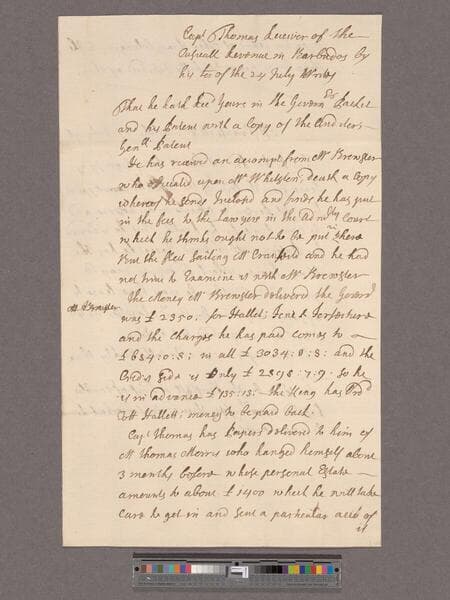 Capt Thomas Receiver of the
Casuall Revenue in Barbados by
his ler of the 24 July Writes
That he hath Recd Yours in the Governrs Packet
and his Patent with a Copy of the Auditors
Genll Patent
He has received an accompt from Mr Brewster
who Officiated upon Mr Whetsten death a Copy
whereof he sends Inclosed and finds he has put
in the fees to the Lawyers in the Admlty Court
which he thinks ought not to be put in there
But the fleet Sailing Mr Cranfeild and he had
not time to Examine it with Mr Brewster
Mr Brewster
The Money Mr Brewster delivered the Governr
was £ 2350. for Hallett, fines & forfeitures
and the Charges he has paid comes to
£ 684:0:8; in all £ 3034:0:8: and the
Credit side is Only £ 2898:7:9. So he
is in advance £ 135:13. The King has Ord
Coll Hallett: money to be paid back.
Capt Thomas has Papers delivered to him of
Mr Thomas Morris who hanged himself about
3 months before whose personal Estate
amounts to about £ 1400 which he will take
care to get in and send a particular acct of
it